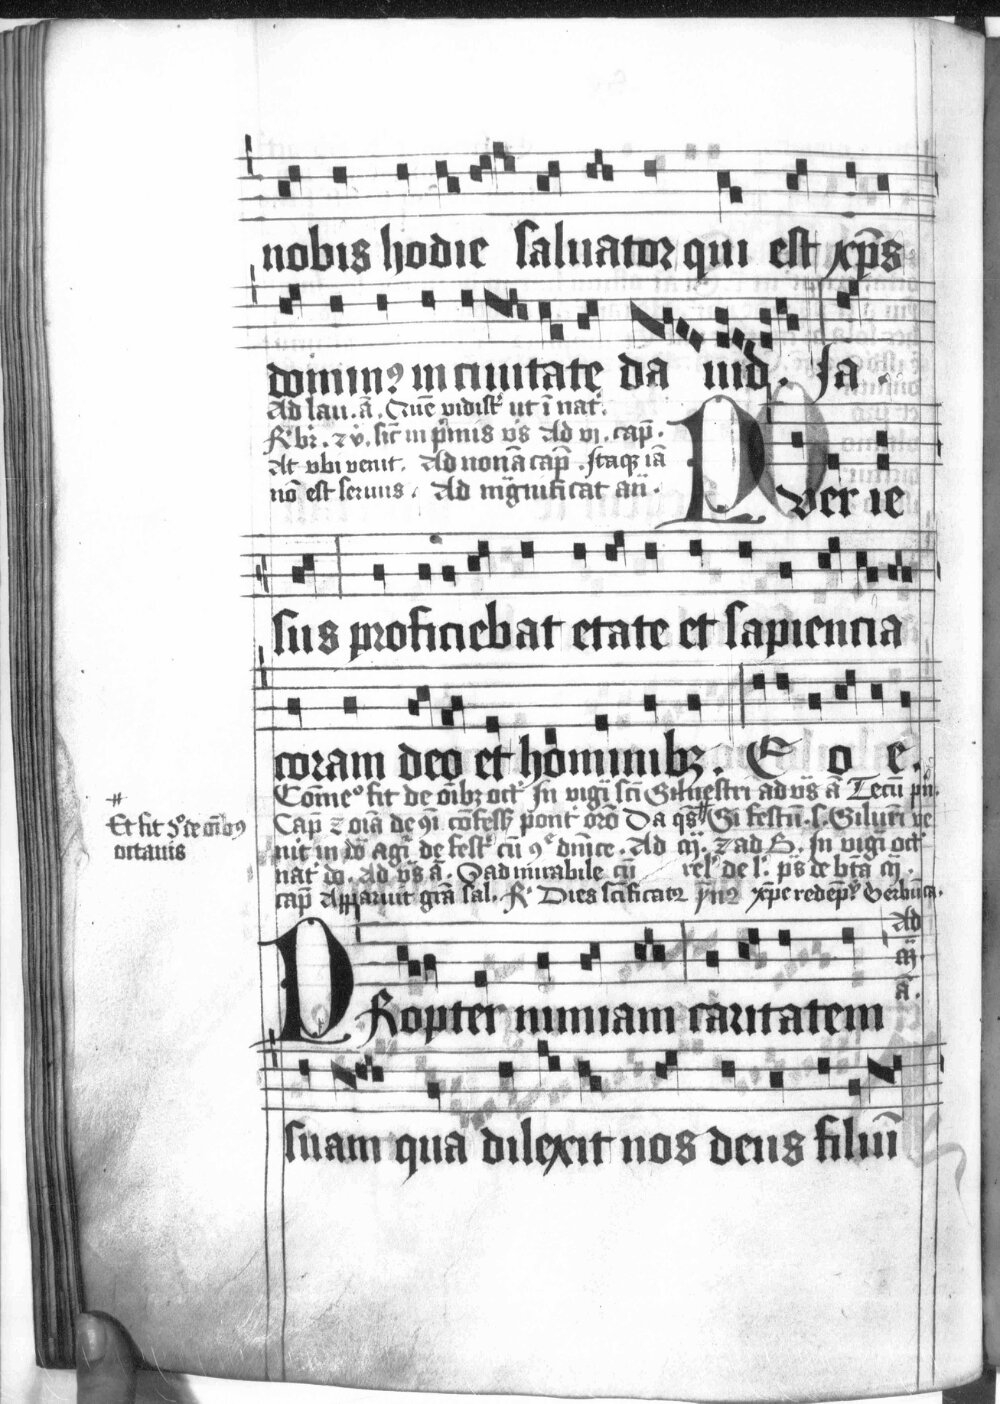 nobis hodie saluator qui est xp̄s
domin⁹ in ciuitate da uid. Ja.
Ad lau. a̅. Quē vidist' ut ī nat'.
R' br'. ⁊ v̓. sic̄ in p̓mis vs̄ Ad vj. cap̄.
At vbi venit. Ad nonā cap̄. Itaqꝫ iā
nō est seruus. Ad mḡnificat an̄.
Pver ie
sus proficiebat etate et sapiencia
coram deo et hominibꝫ. E o e.
Cōme⁰ fit de oībꝫ oct' In vigi̅ sc̄i Siluestri ad vs̄ a̅ Tecū pn̄.
Cap̄ ⁊ oīa de ꝯi cōfess' pont' orō Da qs̄ Si festū. s. Siluri ve
nit in dō agr̄ de fest' cū dnīce. Ad ⁊ ad In vigi̅ oct'
nat' do. Ad vs̄ a̅. Qadmirabile cū rel' de l'. ps̄ de btā
cap̄ Apparuit grā sal. R' Dies sc̄ificat⁹ ym̄ꝫ xp̄e redēp'.
Et fit de oībꝫ
octauis
Ad
a̅.
PRopter nimiam caritatem
suam qua dilexit nos deus filiū